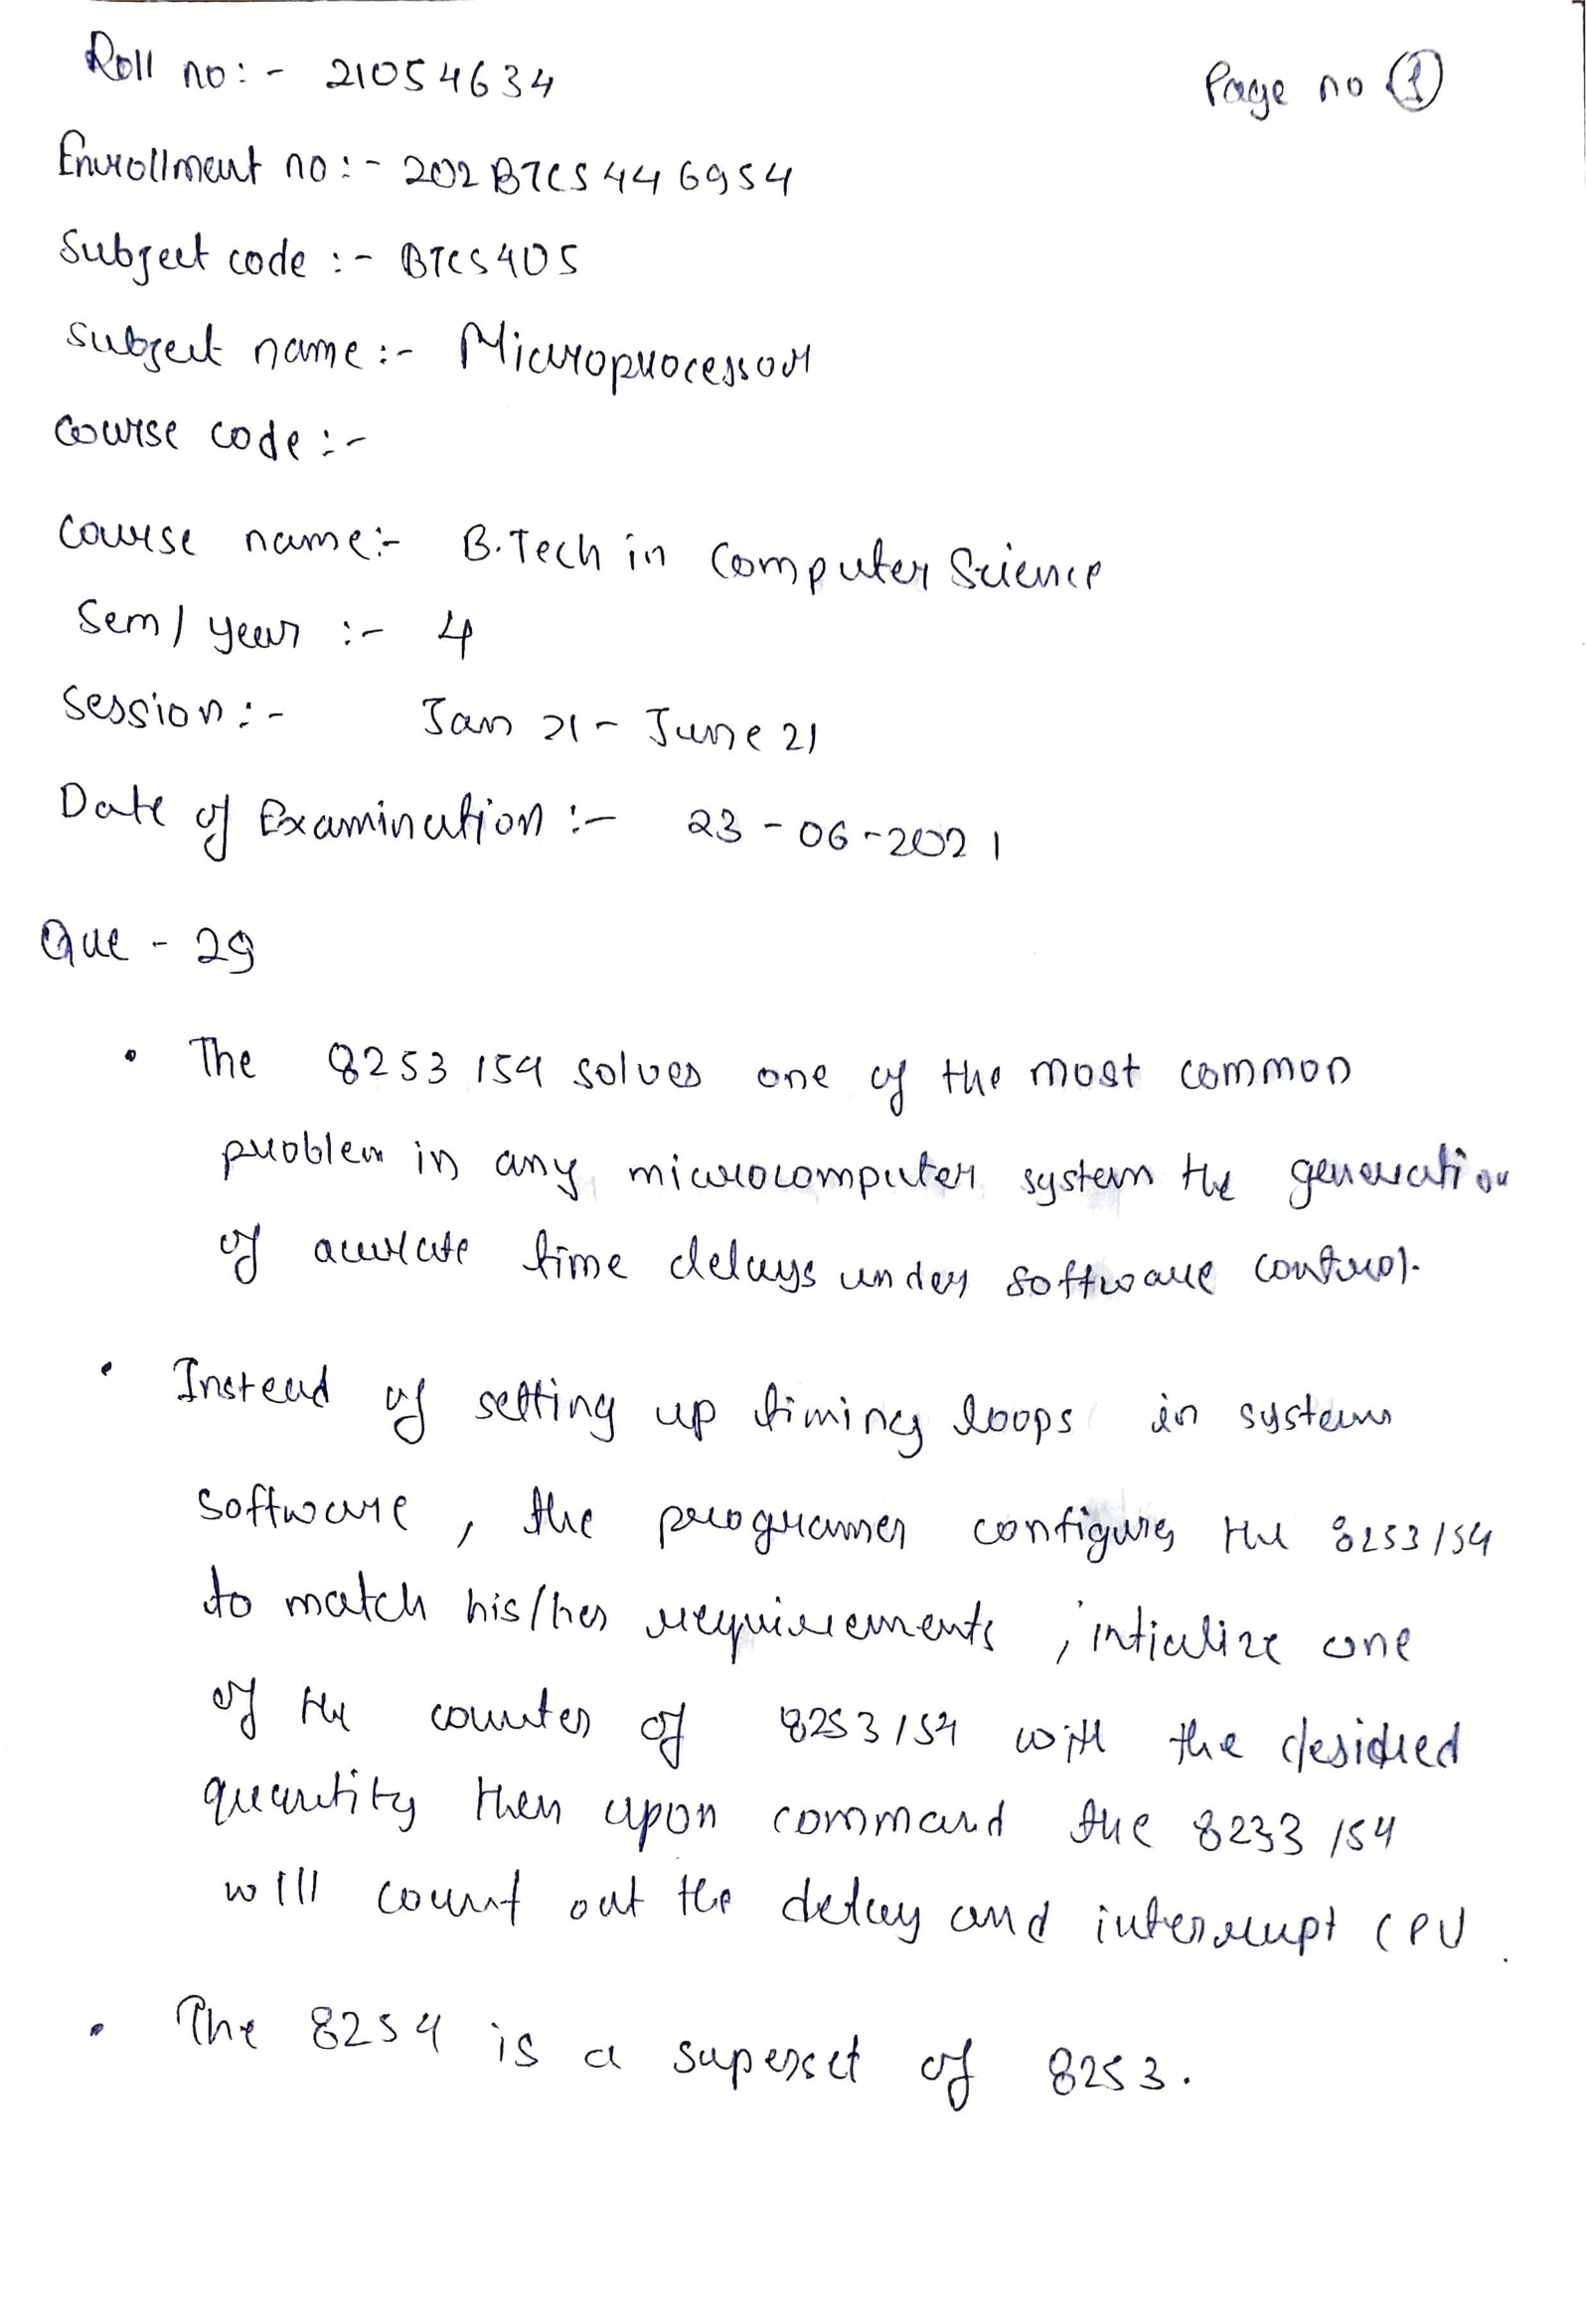 Roll no:- 21054634
Page no ①
Enrollment no:- 202BTCS446954
Subject code :- BTCS405
Subject name:- Microprocessor
Course code :-
Course name:- B.Tech in Computer Science
Sem/year :- 4
Session:- Jan 21 - June 21
Date of Examination :- 23-06-2021
Que - 29
• The 8253/54 solves one of the most common
problem in any microcomputer system the generation
of accurate time delays under software control.
• Instead of setting up timing loops in system
software, the programer configures the 8253/54
to match his/her requirements, intialize one
of the counter of 8253/54 with the desidred
quantity then upon command the 8233/54
will count out the delay and interrupt CPU.
• The 8254 is a superset of 8253.